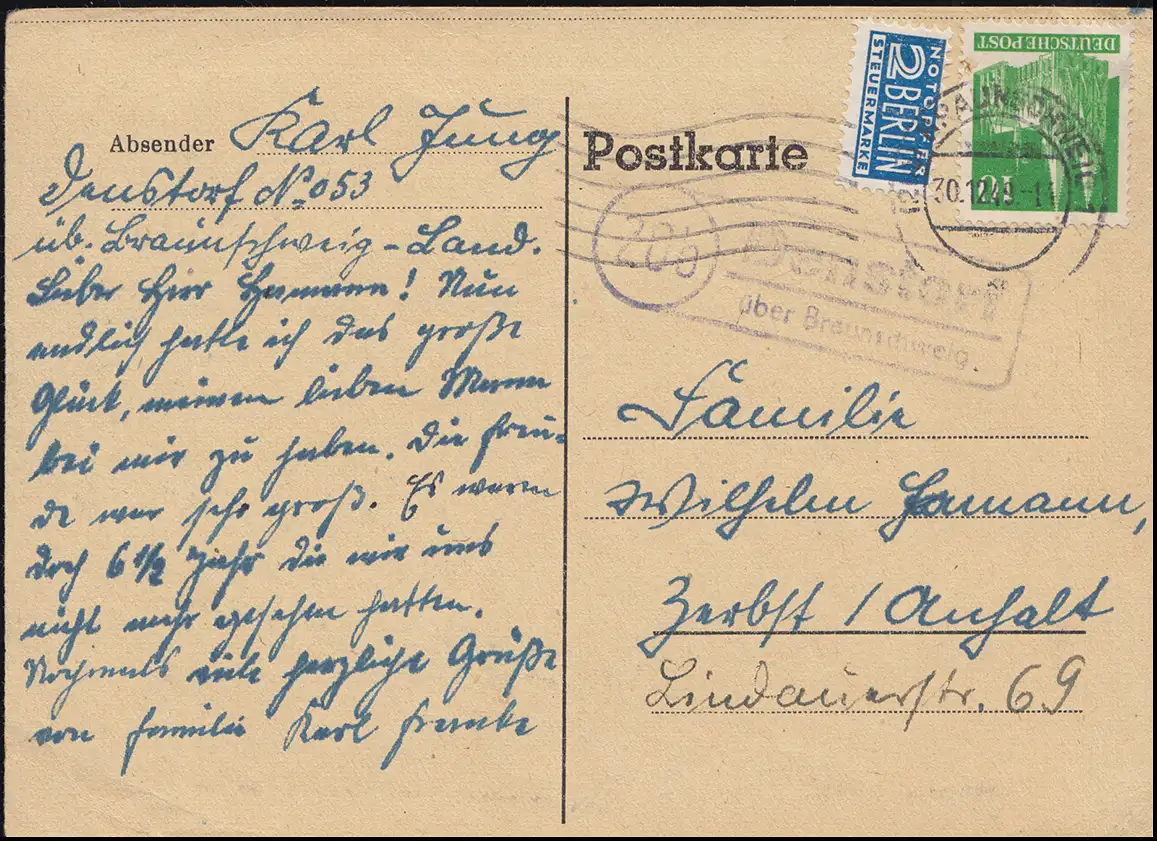 Absender Karl Jung
Denstorf No 053
üb. Braunschweig-Land.
Lieber Herr Hamann! Nun
endlich hatte ich das große
Glück, meinen lieben Mann
bei mir zu haben. Die Freu-
de war sehr groß. Es waren
doch 6 1/2 Jahr die wir uns
nicht mehr gesehen hatten.
Nochmals viele herzliche Grüße
von Familie Karl
Postkarte
NOTOPFER
2 BERLIN
STEUERMARKE
DEUTSCHE POST
10
BRAUNSCHWEIG
30.12.49
20b
Denstorf
über Braunschweig.
Familie
Wilhelm Hamann,
Zerbst / Anhalt
Lindauerstr. 69